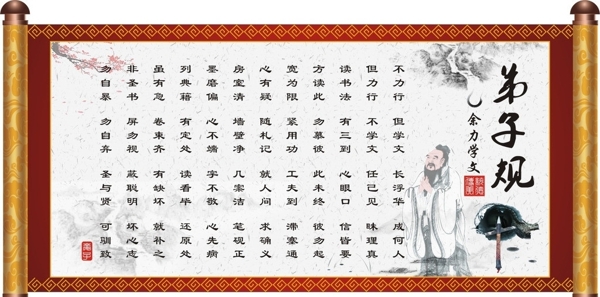 弟子规
余力学文
不力行 但学文 长浮华 成何人
但力行 不学文 任己见 昧理真
读书法 有三到 心眼口 信皆要
方读此 勿慕彼 此未终 彼勿起
宽为限 紧用功 工夫到 滞塞通
心有疑 随札记 就人问 求确义
房室清 墙壁净 几案洁 笔砚正
墨磨偏 心不端 字不敬 心先病
列典籍 有定处 读看毕 还原处
虽有急 卷束齐 有缺坏 就补之
非圣书 屏勿视 蔽聪明 坏心志
勿自暴 勿自弃 圣与贤 可驯致